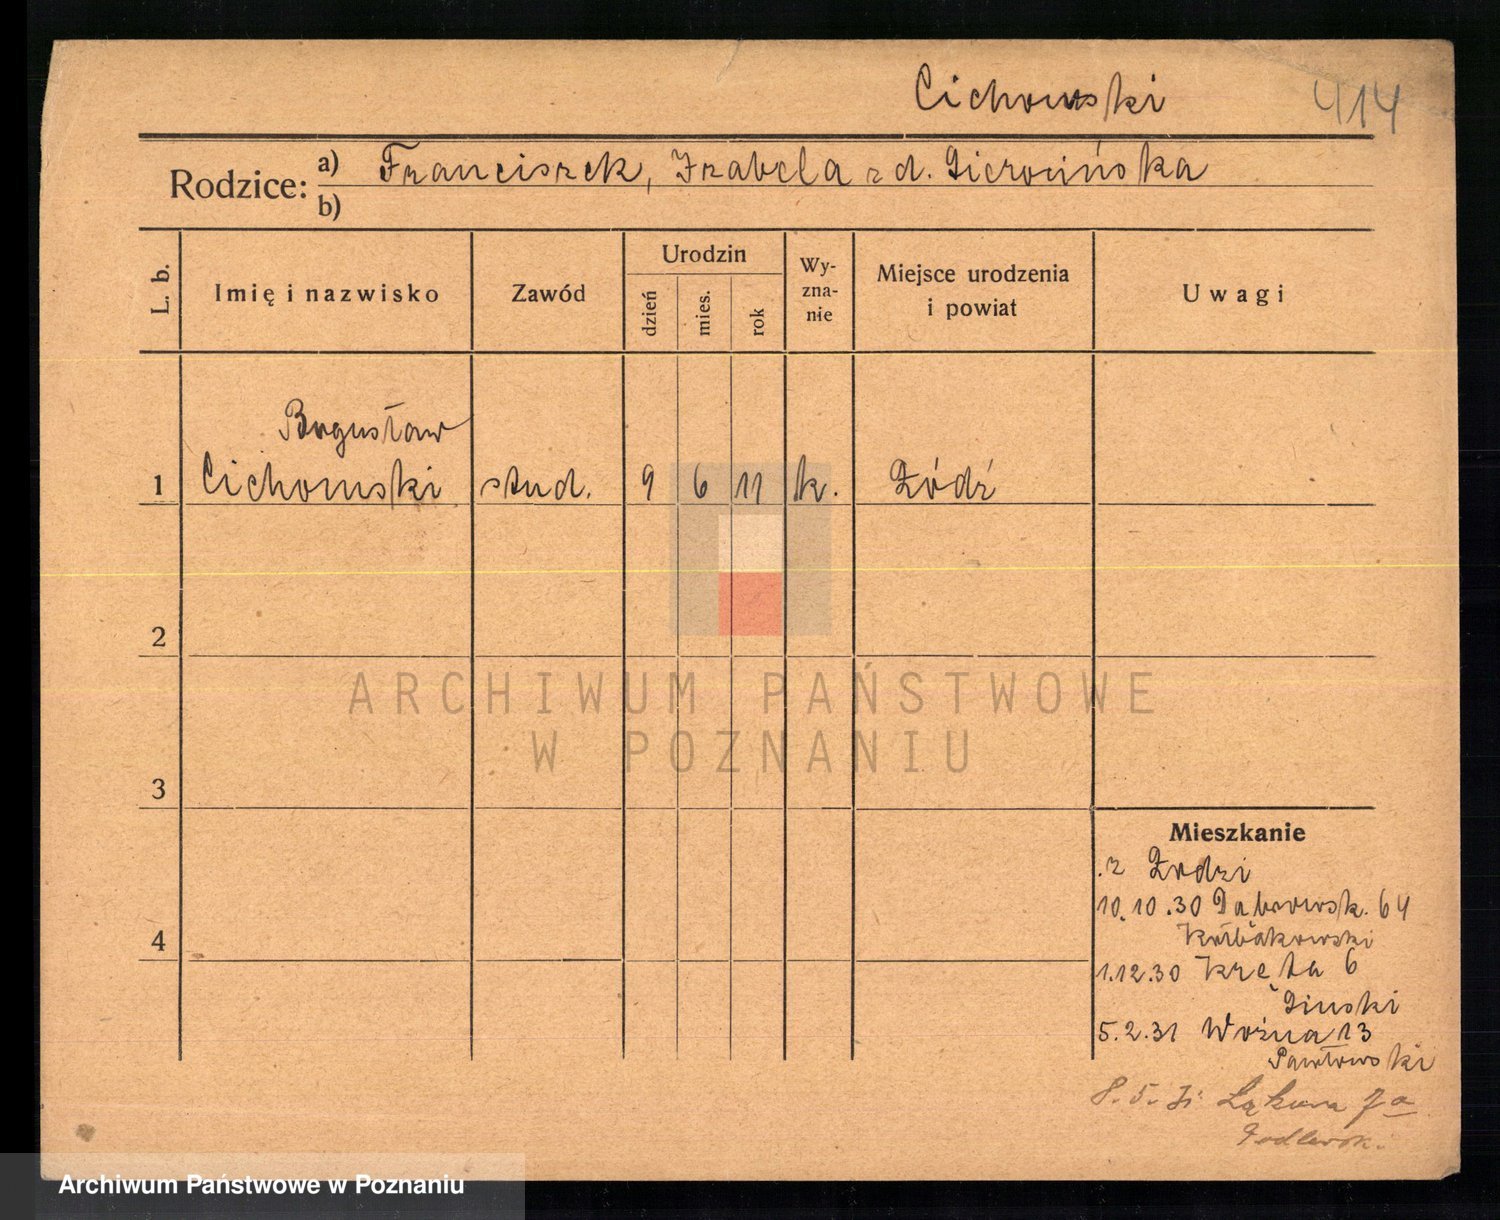 Cichowski 414
Rodzice: a) Franciszek, Izabela z d. Gierocińska
b)
L. b. Imię i nazwisko Zawód Urodzin dzień mies. rok Wyznanie Miejsce urodzenia i powiat Uwagi
Bogusław
1 Cichowski stud. 9 6 11 k. Łódź
2
3
4
Mieszkanie
z Łodzi
10.10.30 Dąbrowsk. 64
1.12.30 Kręta 6
5.2.31 Woźna 13
Pawłowski
8.5.31 Łąkowa 7a
ARCHIWUM PAŃSTWOWE
W POZNANIU
Archiwum Państwowe w Poznaniu